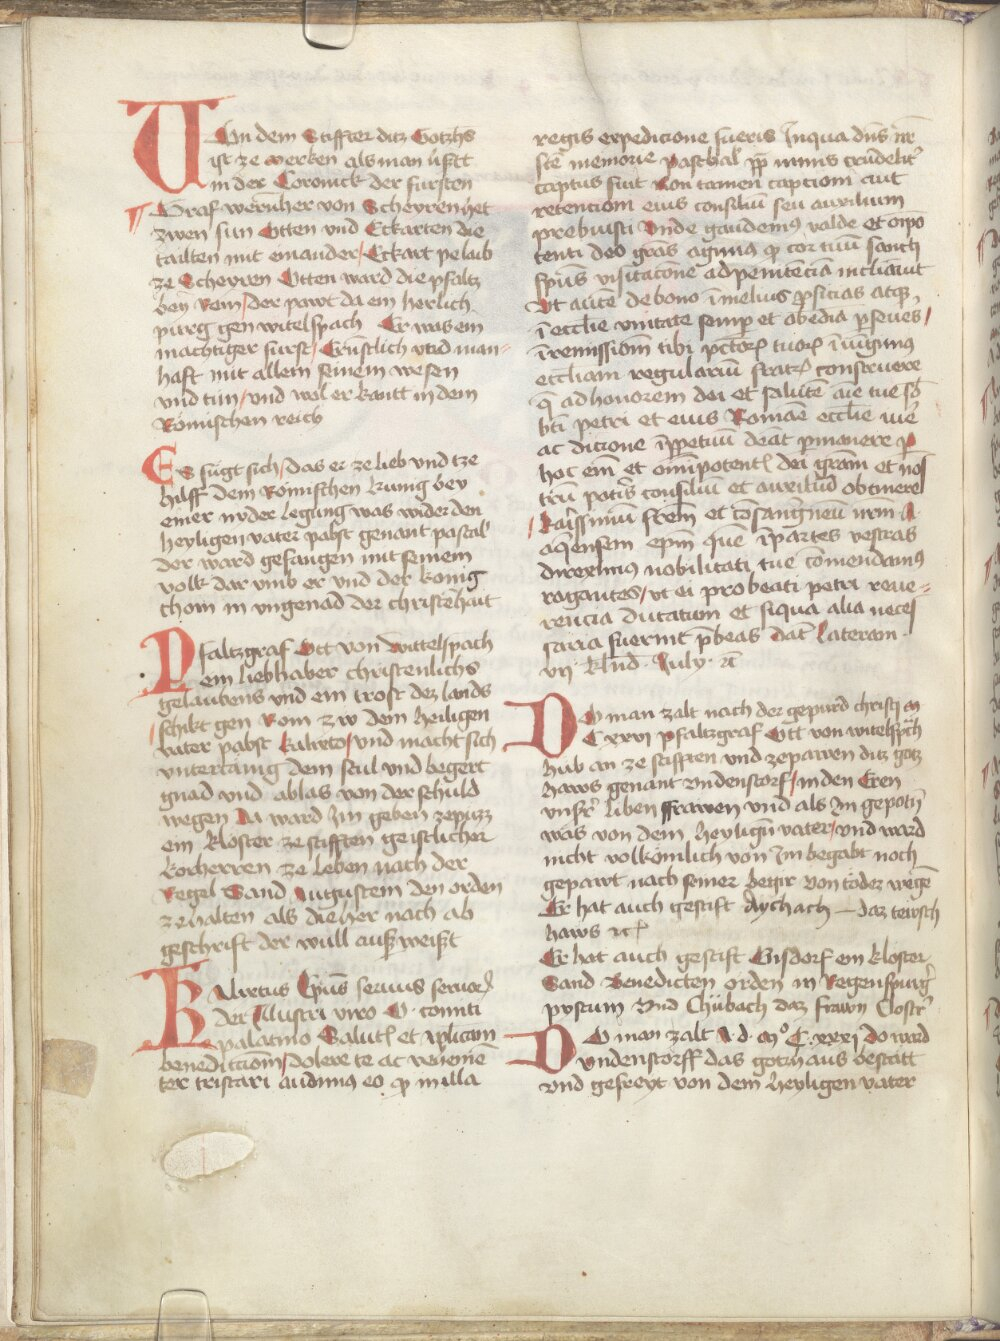 Von dem Stiffter ditz Gotzhs
ist ze merken als man list
in der Coronick der fursten
Graf wernher von Scheyren het
zwen sun Otten und Eckarten die
tailten mit einander / Eckart pelaib
ze Scheyren Otten ward die pfaltz
bey Rein / der pawt da ein herlich
purg gen witelspach Er was ein
mächtiger furst / Ernstlich vnd man=
haft mit allem seinem wesen
vnd tun / vnd wol erkantt in dem
Römischen reich
Es fügt sich / das er ze lieb vnd tze
hilff dem Römischen kunig bey
einer nyder legung was wider den
heyligen vater pabst genant pascal
der ward gefangen mit seinem
volk dar vmb er vnd der konig
chom in vngenad der christēhait
Pfaltzgraf Ott von Wittelspach
ein liebhaber christenlichs
gelaubens vnd ein trost dez lands
schikt gen Rom zw dem heiligen
vater pabst kalixto / vnd macht sich
vntertanig dem stul vnd begert
gnad vnd ablas von der schuld
wegen Da ward Im geben zepuzz
ein kloster ze stifften geistlicher
korherren ze leben nach der
Regel Sand Augustein den orden
ze halten als die her nach ab
geschrift der wull auß weist
Kalixtus Ep̄us seruus seruoꝝ
dei Illustri viro O comiti
palatino Salutē et aplicam
benedictiom / dolere te ac veheme
ter tristari audimus eo ꝙ in illa
regis expedicione fueris In qua dn̄s nr̄
ste memorie Paschal pp̄ nimis crudelit̄
captus fuit Non tamen captiom aut
retentiom eius consiliū seu auxilium
prebuisti Unde gaudemus valde et om̄po
tenti deo gras̄ agimus ꝙ cor tuū sancti
spūs visitacone ad penitēciā inclinauit
Ut aūte de bono ī melius ꝓficias atqȝ
ī ecclie vnitate semp et obedīa ꝑseueres /
ī remissiom tibi pctoꝝ tuoꝝ īiūgimus
eccliam regulariū fratrꝝ construere
q̄ ad honorem dei et salutē aīe tue sb̄
bti petri et eius Romāe ecclie iure
ac dicione īpetuū deāt ꝑmanere ꝑ
hoc em̄ et om̄ipotentꝭ dei gram et nos
trū potis̄ consiliū et auxiliū obtinere
karissimū frēm et cōsangneū nrm A
aqensem epm̄ quē ī partes vestras
direximus nobilitati tue cōmendamus
rogantes / vt ei pro beati petri reue=
rencia ducatum et siqua alia neces
saria fuerint p̄beas dat̄ Lateran ·
vij · klnd · July · ⁊c̄
Do man zalt nach der gepurd christi M
C xxvi pfaltzgraf Ott von witelspach
hub an ze stifften vnd zepawen ditz gotz
haws genant vndenstorf / in den Eren
vnsr̄ liben frawen vnd als Im gepotn̄
was von dem heyligū vater / vnd ward
nicht volkömlich von Im begabt noch
gepawt nach seiner begir von todez wegē
Er hat auch gestift Aychach — daz tewsch
haws ⁊c
Er hat auch gestift Eisdorf ein kloster
Sand Benedicten orden in Regenspurg̉
pystum Vnd Chübach daz frawn Clostr̄
Do man zalt A · d · M° C · xxxj Do ward
vndenstorff das gotzhaus bestatt
vnd gefreyt von dem heyligen vater